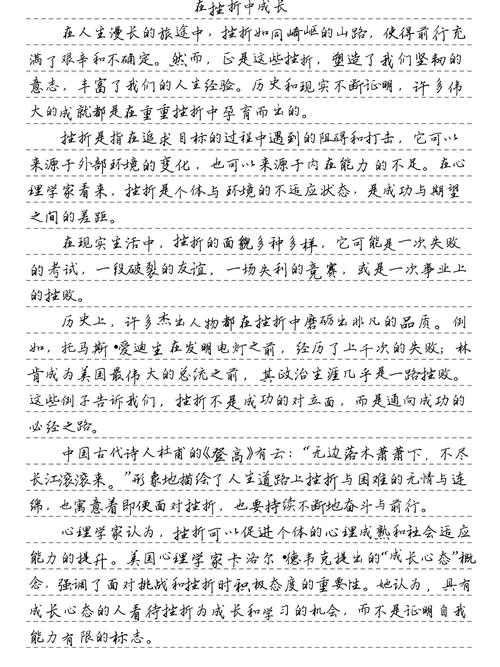 在挫折中成长
在人生漫长的旅途中，挫折如同崎岖的山路，使得前行充
满了艰辛和不确定。然而，正是这些挫折，塑造了我们坚韧的
意志，丰富了我们的人生经验。历史和现实不断证明，许多伟
大的成就都是在重重挫折中孕育而出的。
挫折是指在追求目标的过程中遇到的阻碍和打击，它可以
来源于外部环境的变化，也可以来源于内在能力的不足。在心
理学家看来，挫折是个体与环境的不适应状态，是成功与期望
之间的差距。
在现实生活中，挫折的面貌多种多样，它可能是一次失败
的考试，一段破裂的友谊，一场失利的竞赛，或是一次事业上
的挫败。
历史上，许多杰出人物都在挫折中磨砺出非凡的品质。例
如，托马斯·爱迪生在发明电灯之前，经历了上千次的失败；林
肯成为美国最伟大的总统之前，其政治生涯几乎是一路挫败。
这些例子告诉我们，挫折不是成功的对立面，而是通向成功的
必经之路。
中国古代诗人杜甫的《登高》有云：“无边落木萧萧下，不尽
长江滚滚来。”形象地描绘了人生道路上挫折与困难的无情与连
绵，也寓意着即便面对挫折，也要持续不断地奋斗与前行。
心理学家认为，挫折可以促进个体的心理成熟和社会适应
能力的提升。美国心理学家卡洛尔·德韦克提出的“成长心态”概
念，强调了面对挑战和挫折时积极态度的重要性。她认为，具有
成长心态的人看待挫折为成长和学习的机会，而不是证明自我
能力有限的标志。